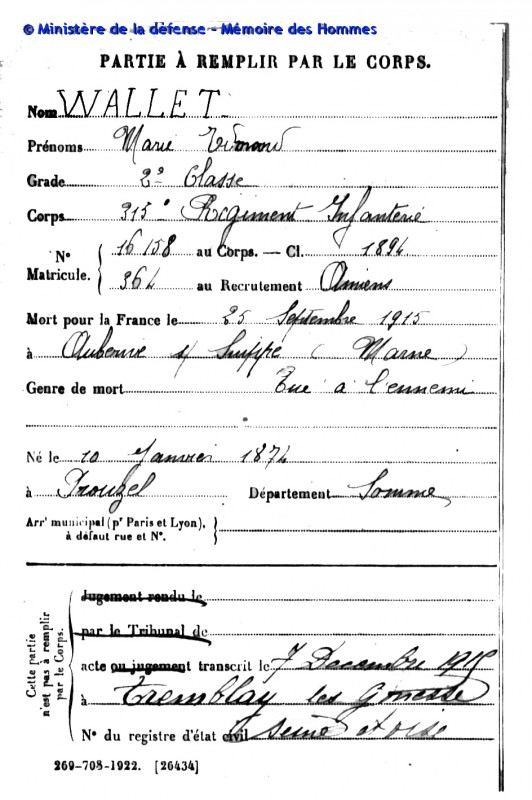 © Ministère de la défense - Mémoire des Hommes
PARTIE À REMPLIR PAR LE CORPS.
Nom WALLET
Prénoms Marie Edmond
Grade 2e Classe
Corps 315e Régiment Infanterie
N° Matricule. 16158 au Corps. — Cl. 1894
364 au Recrutement Amiens
Mort pour la France le 25 Septembre 1915
à Auberive s/ Suippe (Marne)
Genre de mort Tué à l'ennemi
Né le 10 Janvier 1874
à Prouzel Département Somme
Arrt municipal (pr Paris et Lyon),
à défaut rue et N°.
Cette partie n'est pas à remplir par le Corps.
Jugement rendu le
par le Tribunal de
acte ou jugement transcrit le 7 Decembre 1915
à Tremblay les Gonesse
N° du registre d'état civil Seine et Oise
269-708-1922. [26434]